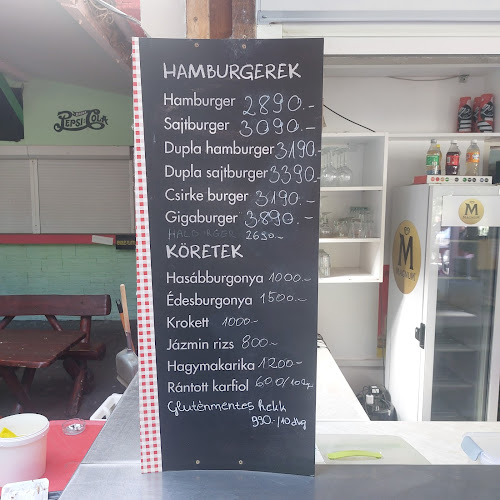 PEPSI-COLA
HAMBURGEREK
Hamburger 2890.-
Sajtburger 3090.-
Dupla hamburger 3190.-
Dupla sajtburger 3390.-
Csirke burger 3190.-
Gigaburger 3890.-
HALBURGER 2690.-
KÖRETEK
Hasábburgonya 1000~
Édesburgonya 1500~
Krokett 1000~
Jázmin rizs 800~
Hagymakarika 1200~
Rántott karfiol 600/10dkg
Gluténmentes hekk
990.-/10dkg
M
M